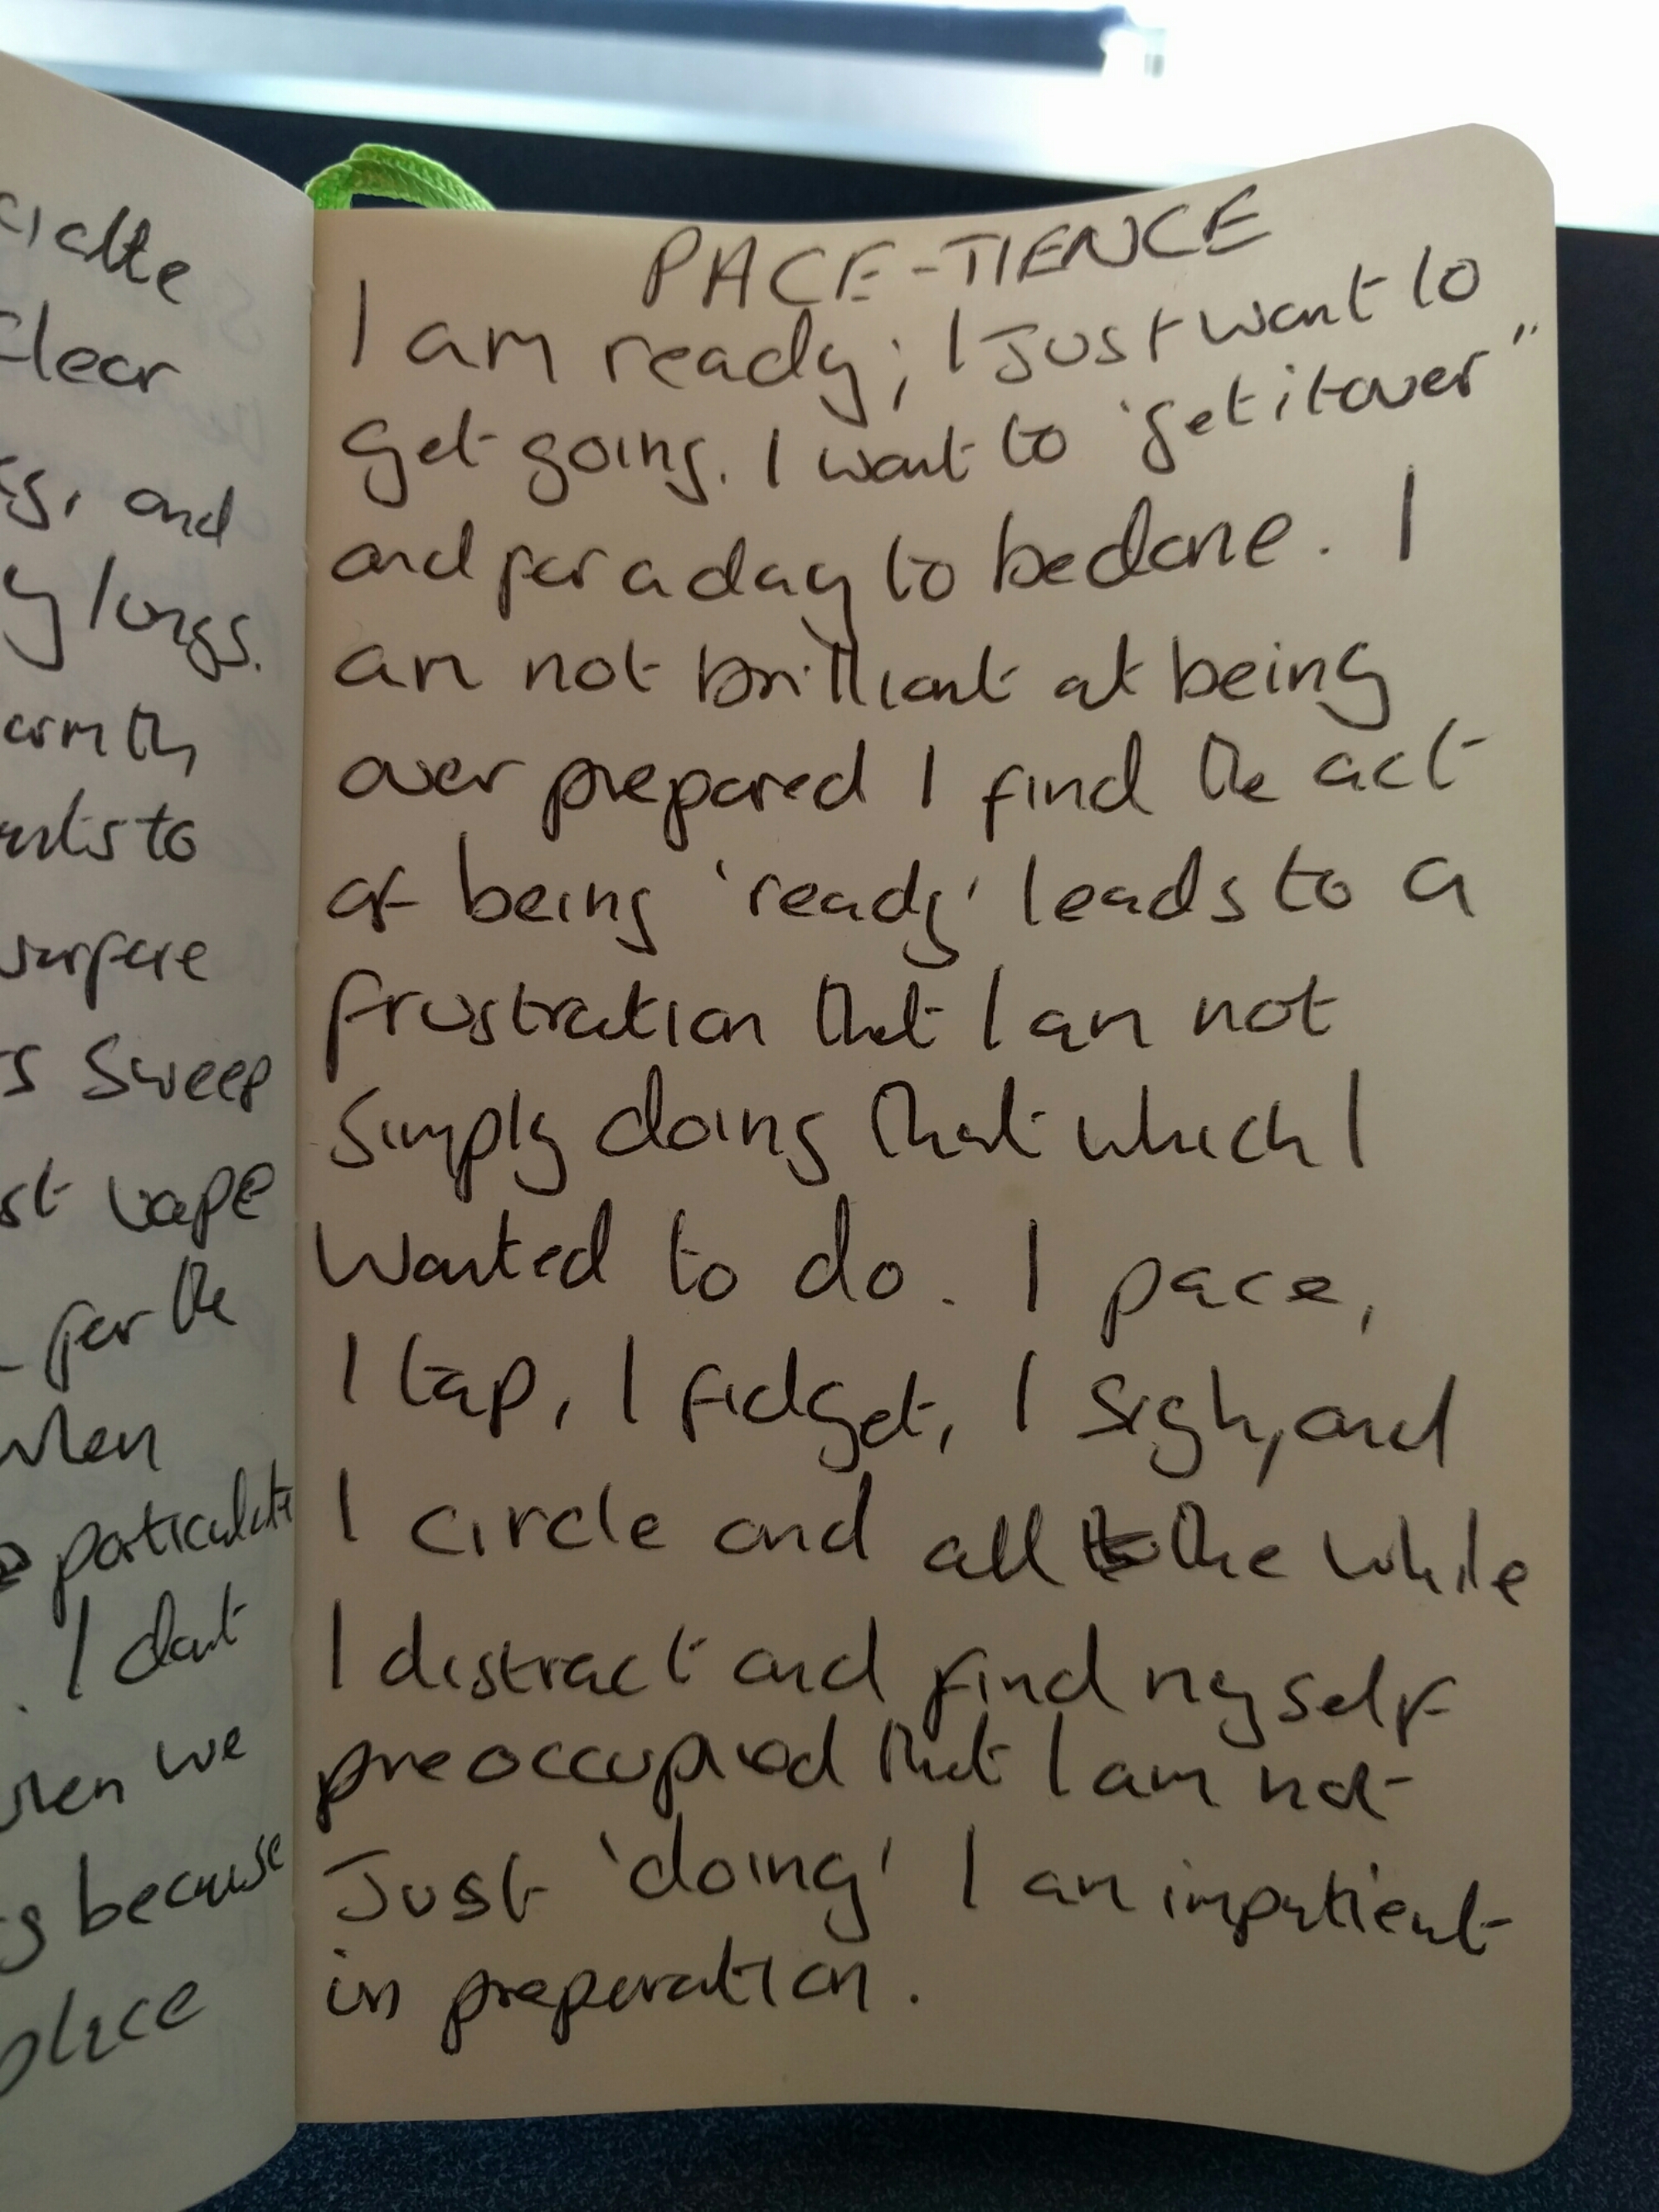 cialte
clear
gs, and
y lungs.
armth
nts to
warfare
s sweep
st vape
for the
when
particulate
. I don't
when we
g because
place
PACE-TIENCE
I am ready; I Just want to
get going. I want to 'get it over"
and for a day to be done. I
am not brilliant at being
over prepared I find the act
of being 'ready' leads to a
frustration that I am not
Simply doing that which I
Wanted to do. I pace,
I tap, I fidget, I sigh, and
I circle and all the while
I distract and find myself
preoccupied that I am not
Just 'doing' I am impatient
in preparation.